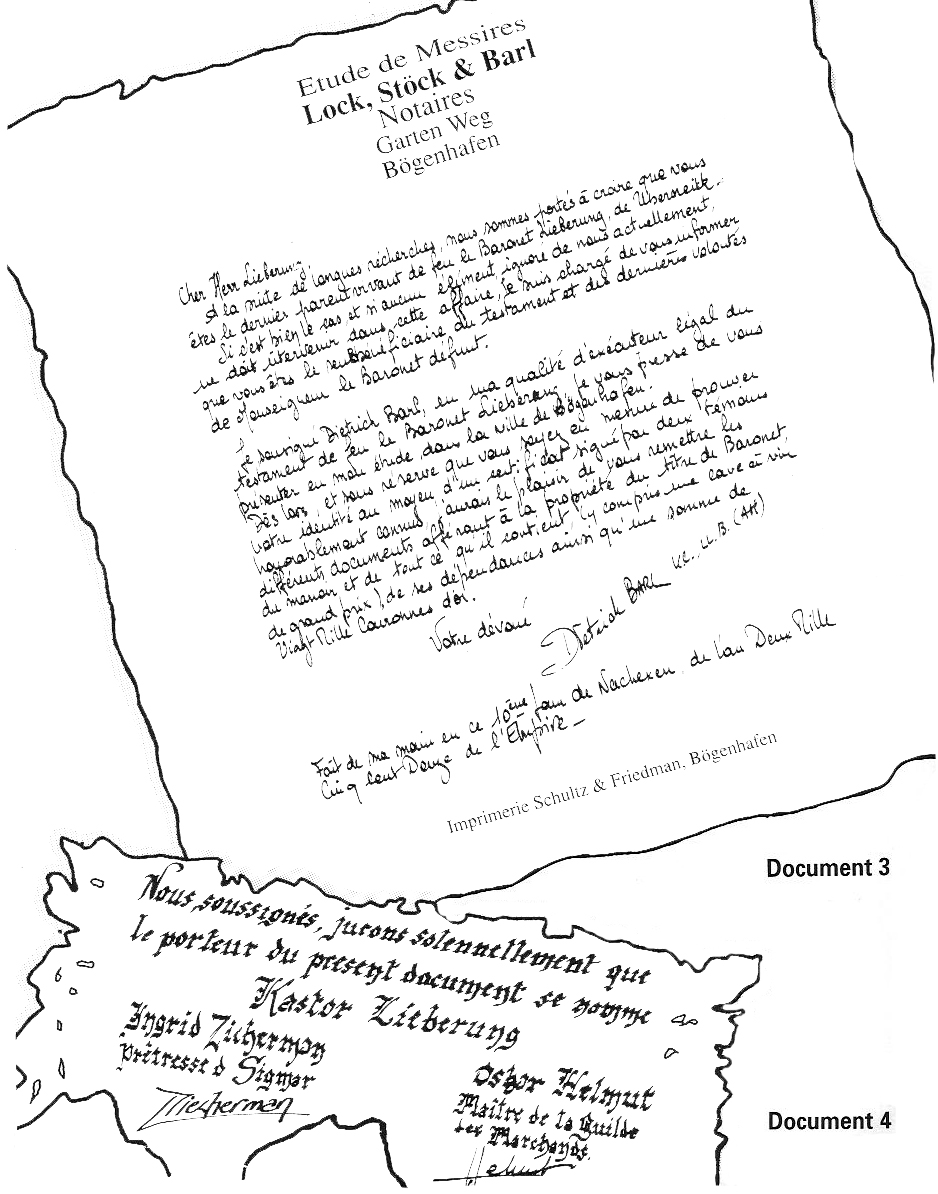 Etude de Messires
Lock, Stöck & Barl
Notaires
Garten Weg
Bögenhafen
Cher Herr Lieberung,
A la suite de longues recherches, nous sommes portés à croire que vous
êtes le dernier parent vivant de feu le Baronet Lieberung, de Ubersreikk.
Si c'est bien le cas et si aucun élément ignoré de nous actuellement,
ne doit intervenir dans cette affaire, je suis chargé de vous informer
que vous êtes le seul bénéficiaire du testament et des dernières volontés
de Monseigneur le Baronet défunt.
Je soussigné Dietrich Barl, en ma qualité d'exécuteur légal du
testament de feu le Baronet Lieberung, je vous presse de vous
présenter en mon étude, dans la ville de Bögenhafen.
Dès lors, et sous réserve que vous soyez en mesure de prouver
votre identité au moyen d'un certificat signé par deux témoins
honorablement connus, j'aurais le plaisir de vous remettre les
différents documents afférant à la propriété du titre de Baronet,
du manoir et de tout ce qu'il contient, (y compris une cave à vin
de grand prix) de ses dépendances ainsi qu'une somme de
Vingt Mille Couronnes d'or.
Votre dévoué
Dietrich BARL K.C. LL. B. (AH)
Fait de ma main en ce 10ème Jour de Nachexen, de l'an Deux Mille
Cinq Cent Douze de l'Empire
Imprimerie Schultz & Friedman, Bögenhafen
Document 3
Nous soussignés, jurons solennellement que
le porteur du present document se nomme
Kastor Lieberung
Ingrid Zicherman
Prêtresse d Sigmar
Zicherman
Oskar Helmut
Maître de la Guilde
des Marchands.
Helmut
Document 4